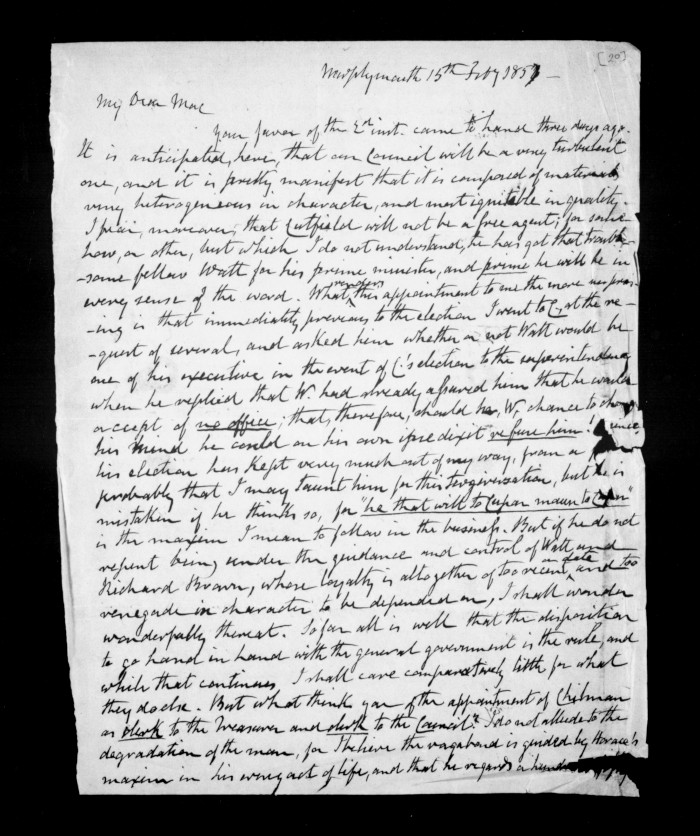 [20]
Newplymouth 15th Feby 1857 –
My Dear Mac
Your favor of the 2nd inst. came to hand three days ago.
It is anticipated, here, that our Council will be a very turbulent
one, and it is pretty manifest that it is composed of materials
very heterogeneous in character, and most ignitable in quality.
I fear, moreover, that Cutfield will not be a free agent; for some
how, or other, but which I do not understand, he has got that trouble-
-some fellow Watt for his prime minister, and prime he will be in
every sense of the word. What renders this appointment to me the more surpris-
-ing is that immediately previous to the election I went to C. at the re-
-quest of several, and asked him whether or not Watt would be
one of his executive in the event of C.'s election to the superintendency
when he replied that W. had already assured him that he would
accept of no office; that, therefore, should he, W, chance to change
his mind he could on his own ipse dixit refuse him!
his election has kept very much out of my way, from a
probably that I may taunt him for this tergiverization, but he is
mistaken if he thinks so, for "he that will to Cupar maun to Cupar"
is the maxim I mean to follow in the business. But if he do not
repent being under the guidance and control of Watt and
Richard Brown, whose loyalty is altogether of too recent a date and too
renegade in character to be depended on, I shall wonder
wonderfully thereat. So far all is well that the disposition
to go hand in hand with the general government is the rule, and
while that continues I shall care comparatively little for what
they do else. But what think you of the appointment of Chilman
as clerk to the Treasurer and clerk to the Council? I do not allude to the
degradation of the man, for I believe the vagabond is guided by Horace's
maxim in his every act of life, and that he regards a